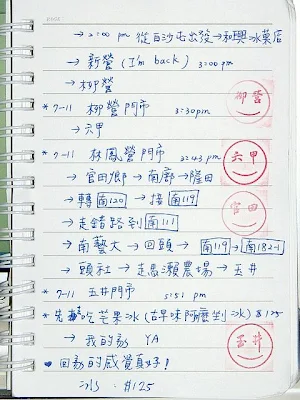 → 2:00 pm 從白沙屯出發→和興冰菓店
→ 新營 (I'm back) 3:00 pm
→ 柳營
* 7-11 柳營門市 3:30 pm
柳營
→ 六甲
* 7-11 林鳳營門市 3:43 pm
六甲
→ 官田鄉 → 南廍 → 隆田
→ 轉 南120 → 接 南119
官田
→ 走錯路到 南111
→ 南藝大 → 回頭 → 南119 → 南182-1
→ 頭社 → 走馬瀨農場 → 玉井
* 7-11 玉井門市 5:51 pm
* 先吃芒果冰 (古早味阿嬤剉冰) $125
→ 我的家 YA
玉井
回家的感覺真好!
冰 : $125